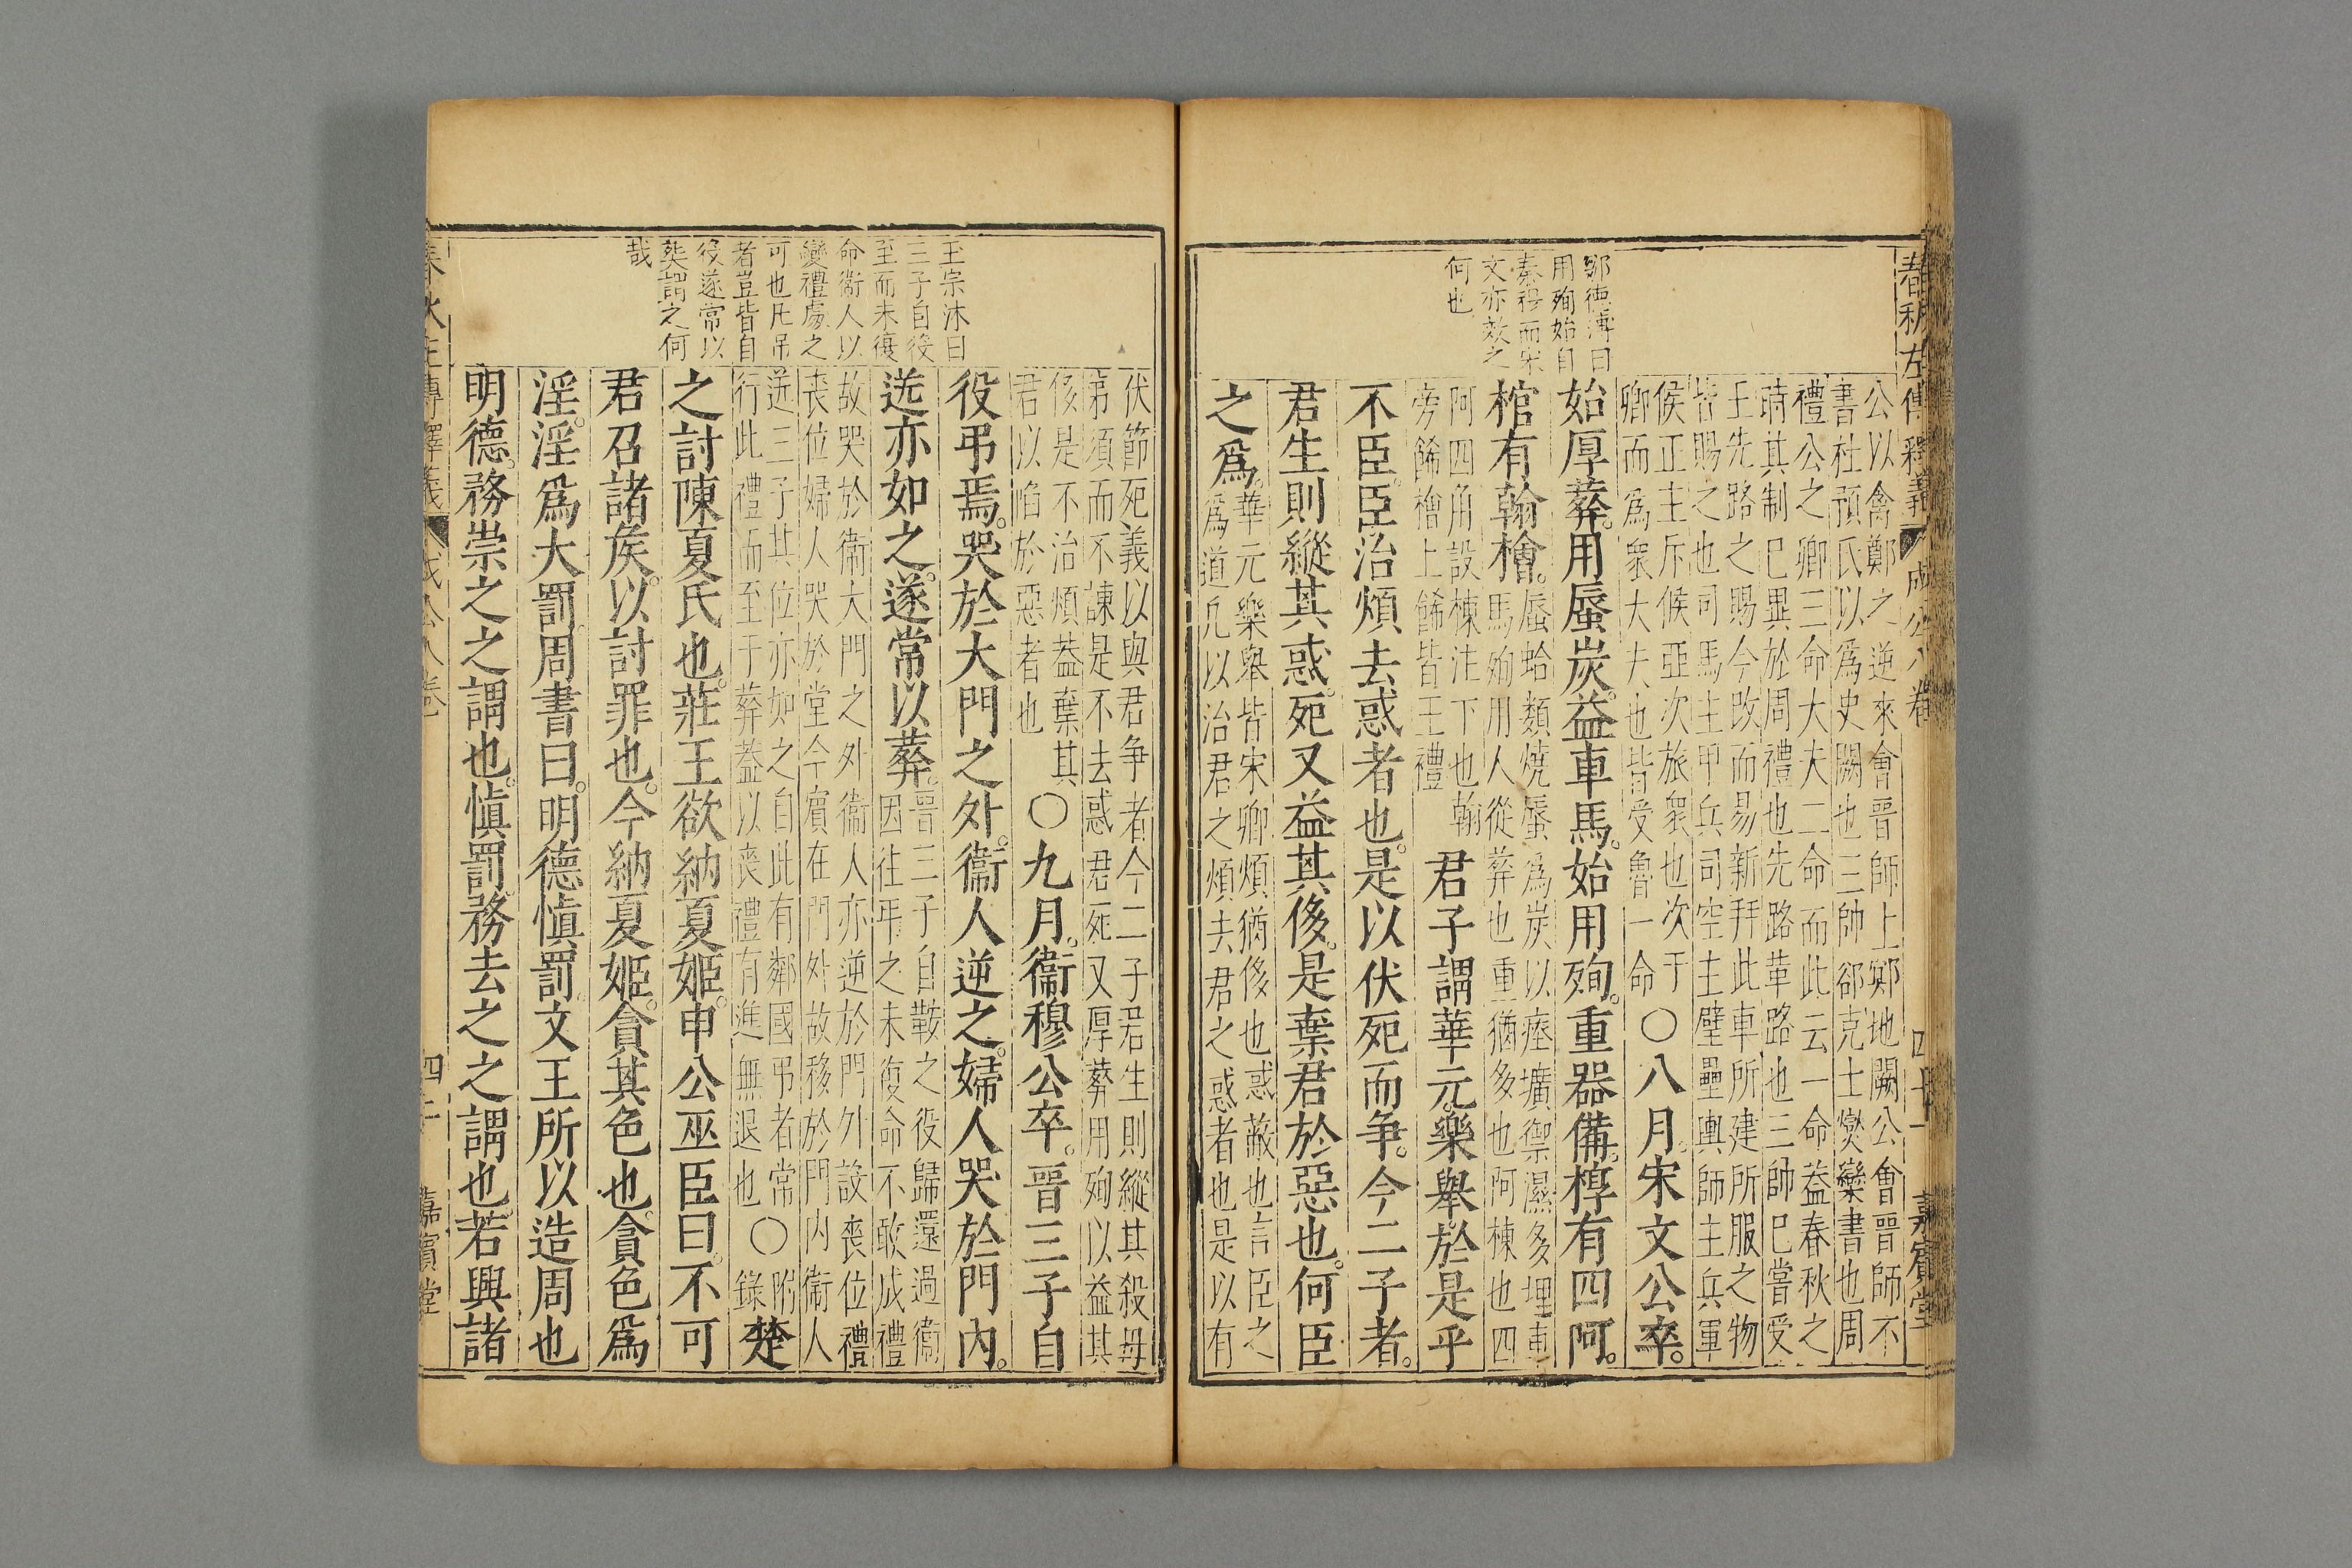 春秋左傳釋義
成公八卷
四十一
嘉賓堂
鄧德溥曰
用殉始自
秦穆而宋
文亦效之
何也
公以禽鄭之逆來會晉師上鄍地闕公會晉師不
書杜預氏以爲史闕也三帥郤克士燮欒書也周
禮公之卿三命大夫二命而此云一命益春秋之
時其制已異於周禮也先路革路也三帥已嘗受
王先路之賜今改而易新拜此車所建所服之物
皆賜之也司馬主甲兵司空主壁壘輿師主兵軍
候正主斥候亞次旅衆也次于
卿而爲衆大夫也皆受魯一命
○八月宋文公卒。
始厚葬。用蜃炭。益車馬。始用殉。重器備。椁有四阿。
棺有翰檜。
蜃蛤類燒蜃爲炭以瘞壙禦濕多埋車
馬殉用人從葬也重猶多也阿棟也四
阿四角設棟注下也翰
旁餙檜上餙皆王禮
君子謂華元樂舉。於是乎
不臣。臣治煩去惑者也。是以伏死而争。今二子者。
君生則縱其惑。死又益其侈。是棄君於惡也。何臣
之爲。
華元樂舉皆宋卿煩猶侈也惑蔽也言臣之
爲道凡以治君之煩去君之惑者也是以有
王宗沐曰
三子自役
至而未復
命衞人以
變禮處之
可也凡吊
者豈皆自
役遂常以
葬謂之何
哉
伏節死義以與君争者今二子君生則縱其殺毋
弟須而不諫是不去惑君死又厚葬用殉以益其
侈是不治煩益棄其
君以陷於惡者也
○九月。衞穆公卒。晉三子自
役弔焉。哭於大門之外。衞人逆之。婦人哭於門內。
送亦如之。遂常以葬。
晉三子自鞌之役歸還過衞
因往弔之未復命不敢成禮
故哭於衞大門之外衞人亦逆於門外設喪位禮
喪位婦人哭於堂今賓在門外故移於門內衞人
送三子其位亦如之自此有鄰國弔者常
行此禮而至于葬益以喪禮有進無退也
○附錄
楚
之討陳夏氏也。莊王欲納夏姬。申公巫臣曰。不可
君召諸矦。以討罪也。今納夏姬。貪其色也。貪色爲
淫。淫爲大罰。周書曰。明德慎罰。文王所以造周也
明德。務崇之之謂也。慎罰。務去之之謂也。若興諸
春秋左傳釋義
成公八卷
四十二
嘉賓堂